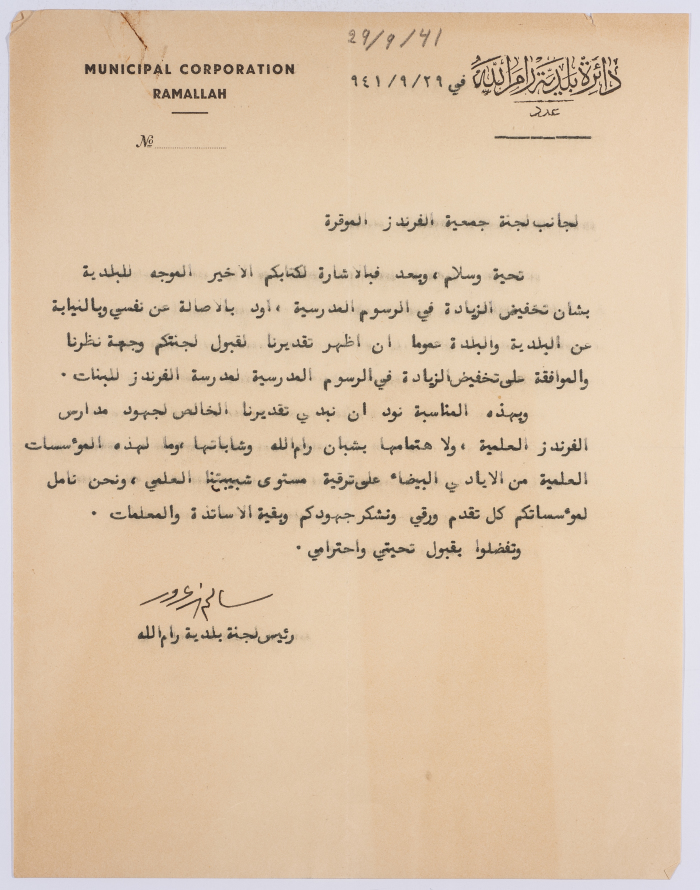 29/9/41
MUNICIPAL CORPORATION
RAMALLAH
№
دائرة بلدية رام الله
في ٢٩/٩/٩٤١
عدد
لجانب لجنة جمعية الفرندز الموقرة
تحية وسلام ، وبعد فبالاشارة لكتابكم الاخير الموجه للبلدية
بشان تخفيض الزيادة في الرسوم المدرسية ، اود بالاصالة عن نفسي وبالنيابة
عن البلدية والبلدة عموما ان اظهر تقديرنا لقبول لجنتكم وجهة نظرنا
والموافقة على تخفيض الزيادة في الرسوم المدرسية لمدرسة الفرندز للبنات ٠
وبهذه المناسبة نود ان نبدي تقديرنا الخالص لجهود مدارس
الفرندز العلمية ، ولاهتمامها بشبان رام الله وشاباتها ،وما لهذه المؤسسات
العلمية من الايادي البيضاء على ترقية مستوى شبيبتنا العلمي ، ونحن نامل
لمؤسساتكم كل تقدم ورقي ونشكر جهودكم وبقية الاساتذة والمعلمات ٠
وتفضلوا بقبول تحيتي واحترامي ٠
سالم زعرور
رئيس لجنة بلدية رام الله